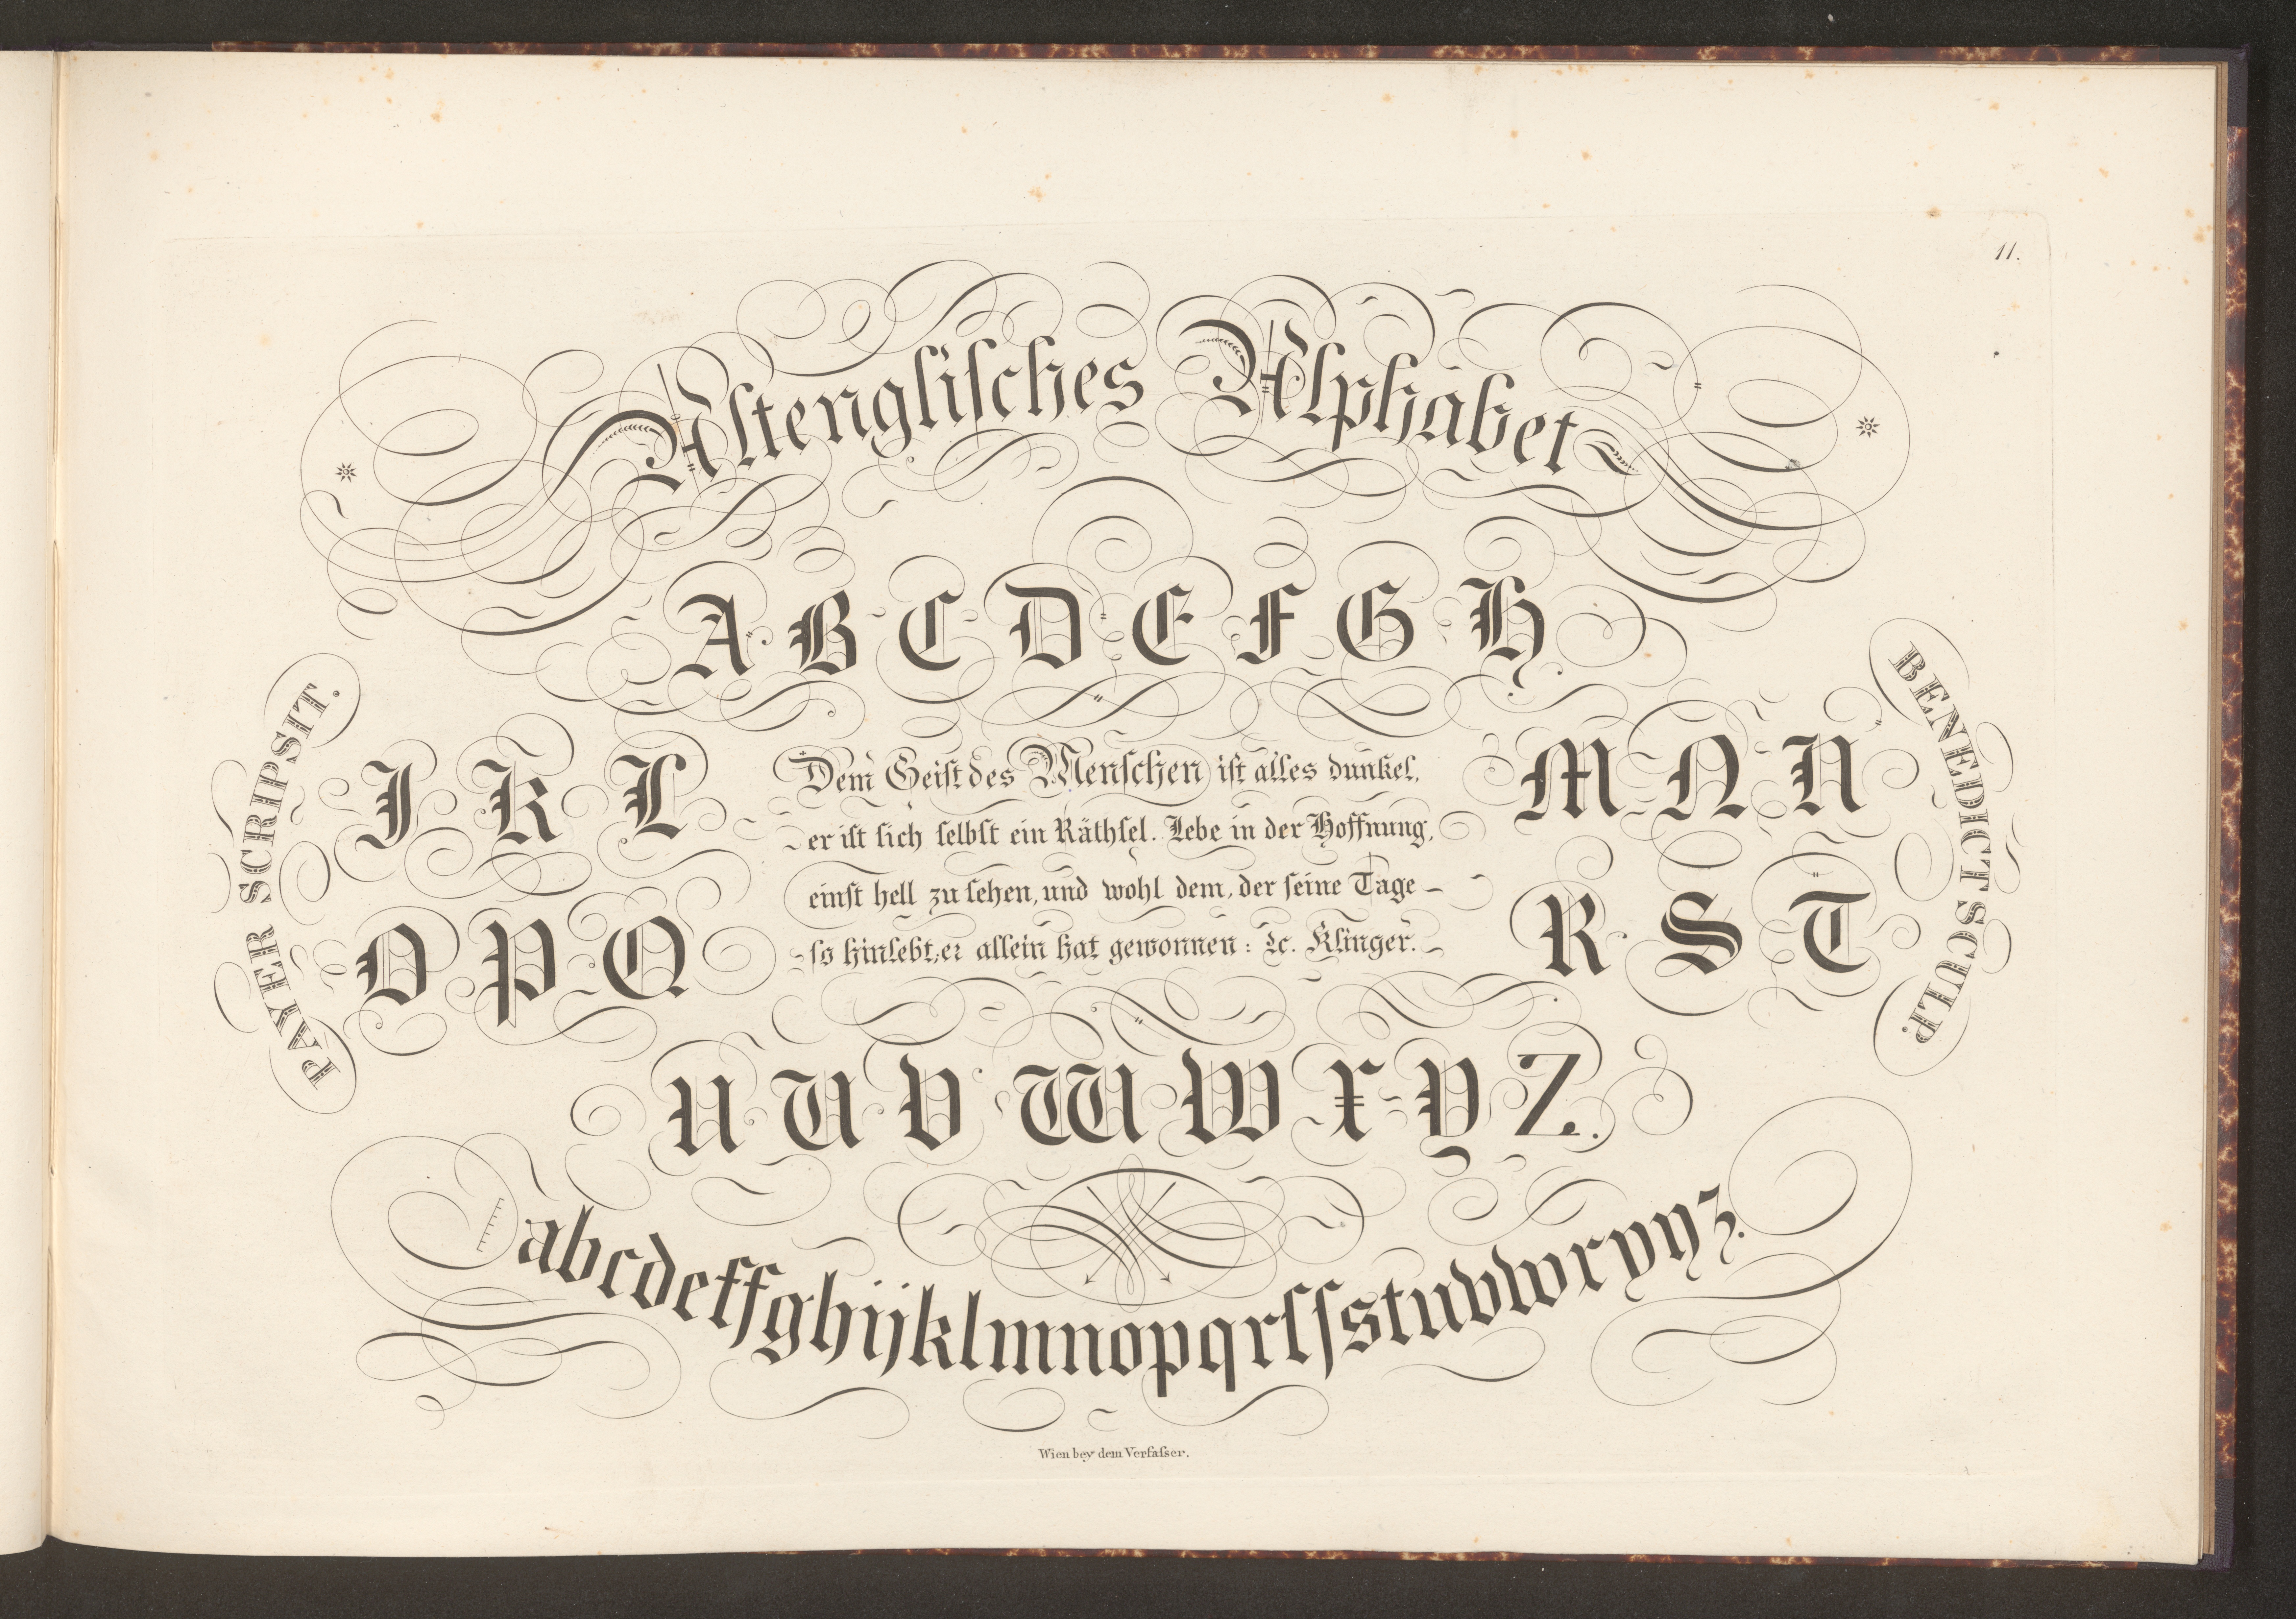 11.
Altenglisches Alphabet
A B C D E F G H
PAYER SCRIPSIT.
BENEDICT SCULP.
I K L
M N N
Dem Geiſt des Menſchen iſt alles dunkel,
er iſt ſich ſelbſt ein Räthſel. Lebe in der Hoffnung,
einſt hell zu ſehen, und wohl dem, der ſeine Tage –
ſo hinlebt, er allein hat gewonnen: ꝛc. Klinger.
O P Q
R S T
U U V W W X Y Z.
abcdeffghijklmnopqrſſstuvwxyyz.
Wien bey dem Verfaſser.